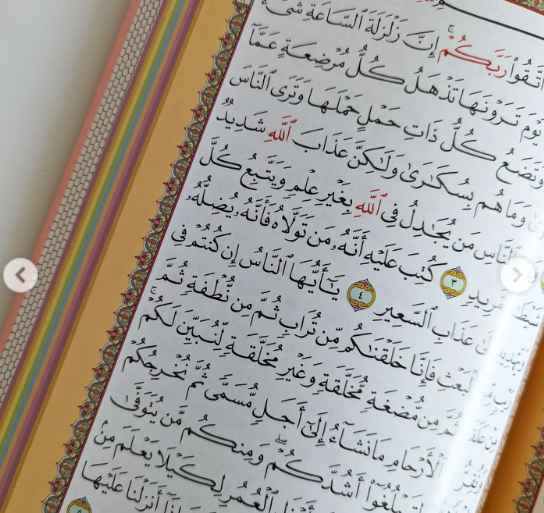 ٱتَّقُوا۟ رَبَّكُمْ إِنَّ زَلْزَلَةَ ٱلسَّاعَةِ
يَوْمَ تَرَوْنَهَا تَذْهَلُ كُلُّ مُرْضِعَةٍ عَمَّآ
وَتَضَعُ كُلُّ ذَاتِ حَمْلٍ حَمْلَهَا وَتَرَى ٱلنَّاسَ
وَمَا هُم بِسُكَـٰرَىٰ وَلَـٰكِنَّ عَذَابَ ٱللَّهِ شَدِيدٌ
ٱلنَّاسِ مَن يُجَـٰدِلُ فِى ٱللَّهِ بِغَيْرِ عِلْمٍ وَيَتَّبِعُ كُلَّ
مَّرِيدٍ ٣ كُتِبَ عَلَيْهِ أَنَّهُۥ مَن تَوَلَّاهُ فَأَنَّهُۥ يُضِلُّهُۥ
عَذَابِ ٱلسَّعِيرِ ٤ يَـٰٓأَيُّهَا ٱلنَّاسُ إِن كُنتُمْ فِى
ٱلْبَعْثِ فَإِنَّا خَلَقْنَـٰكُم مِّن تُرَابٍ ثُمَّ مِن نُّطْفَةٍ ثُمَّ
ثُمَّ مِن مُّضْغَةٍ مُّخَلَّقَةٍ وَغَيْرِ مُخَلَّقَةٍ لِّنُبَيِّنَ لَكُمْ
ٱلْأَرْحَامِ مَا نَشَآءُ إِلَىٰٓ أَجَلٍ مُّسَمًّى ثُمَّ نُخْرِجُكُمْ
لِتَبْلُغُوٓا۟ أَشُدَّكُمْ وَمِنكُم مَّن يُتَوَفَّىٰ
ٱلْعُمُرِ لِكَيْلَا يَعْلَمَ مِنۢ
أَنزَلْنَا عَلَيْهَا